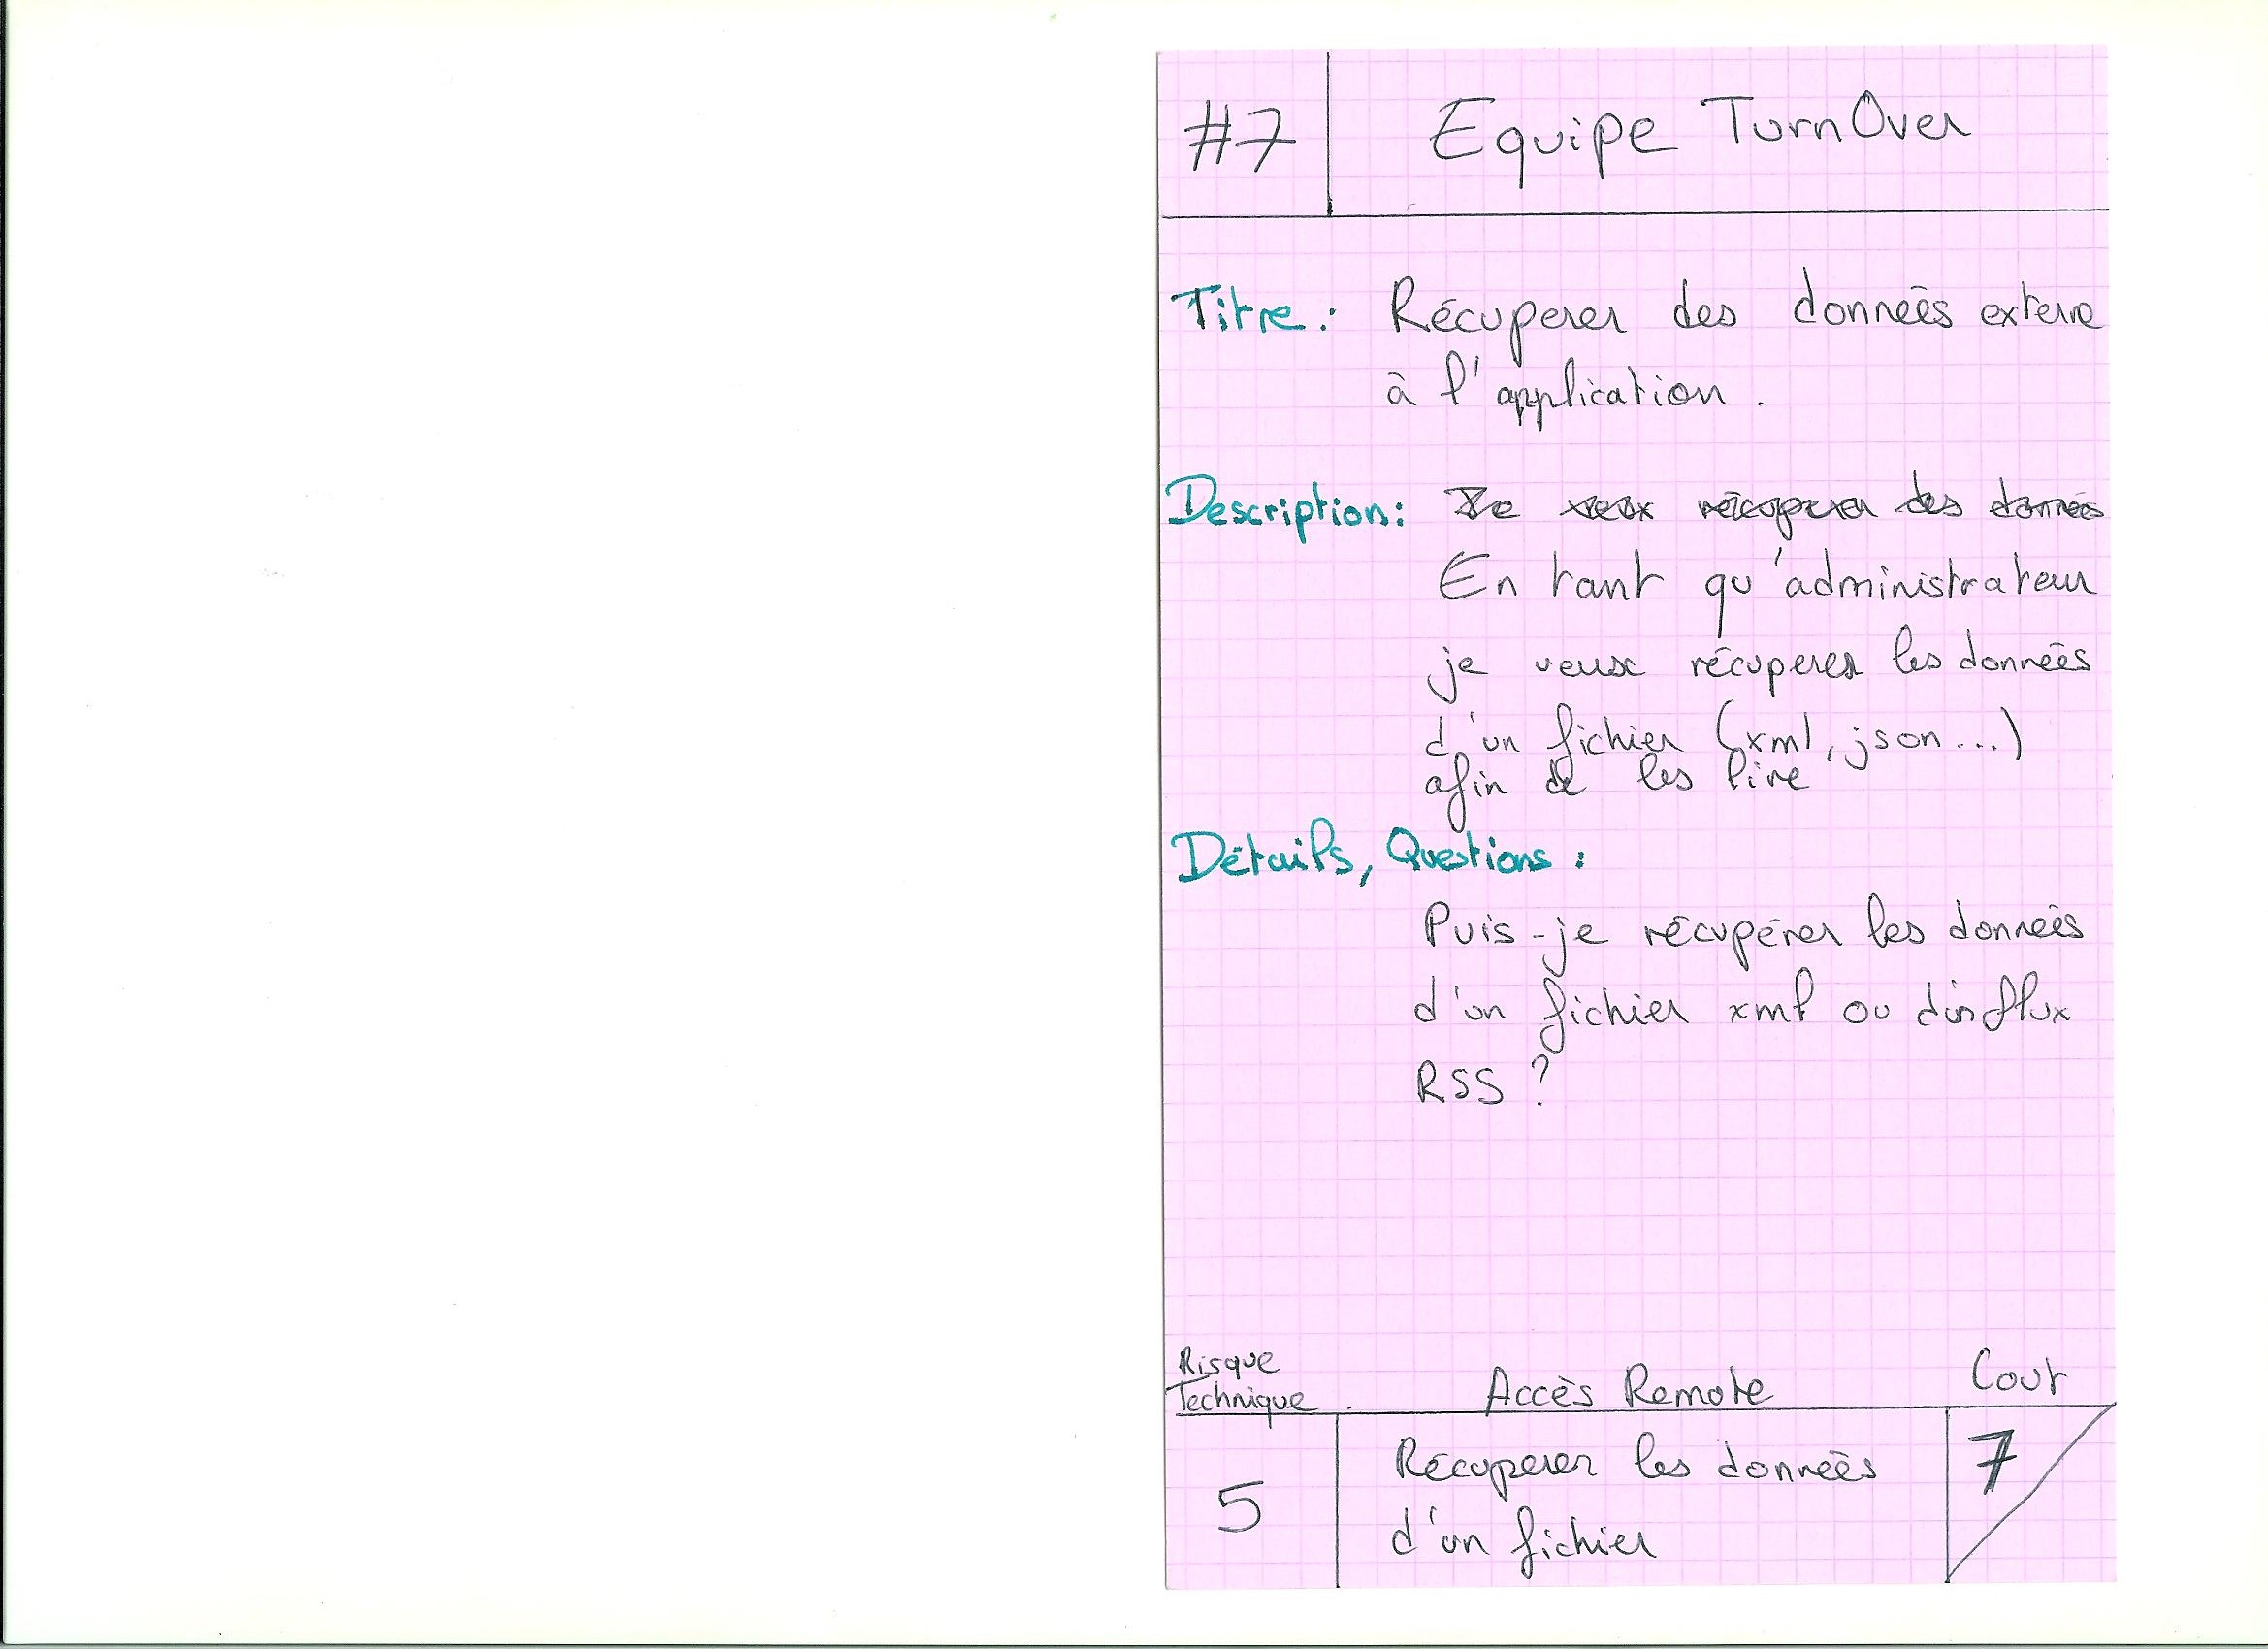 #7
Equipe TurnOver
Titre: Récuperer des données externe
à l'application.
Description: Je veux récuperer des données
En tant qu'administrateur
je veux récuperer les données
d'un fichier (xml, json...)
afin de les lire
Détails, Questions:
Puis-je récupérer les données
d'un fichier xml ou d'un flux
RSS ?
Risque
Technique
Accès Remote
Cout
5
Récuperer les données
d'un fichier
7